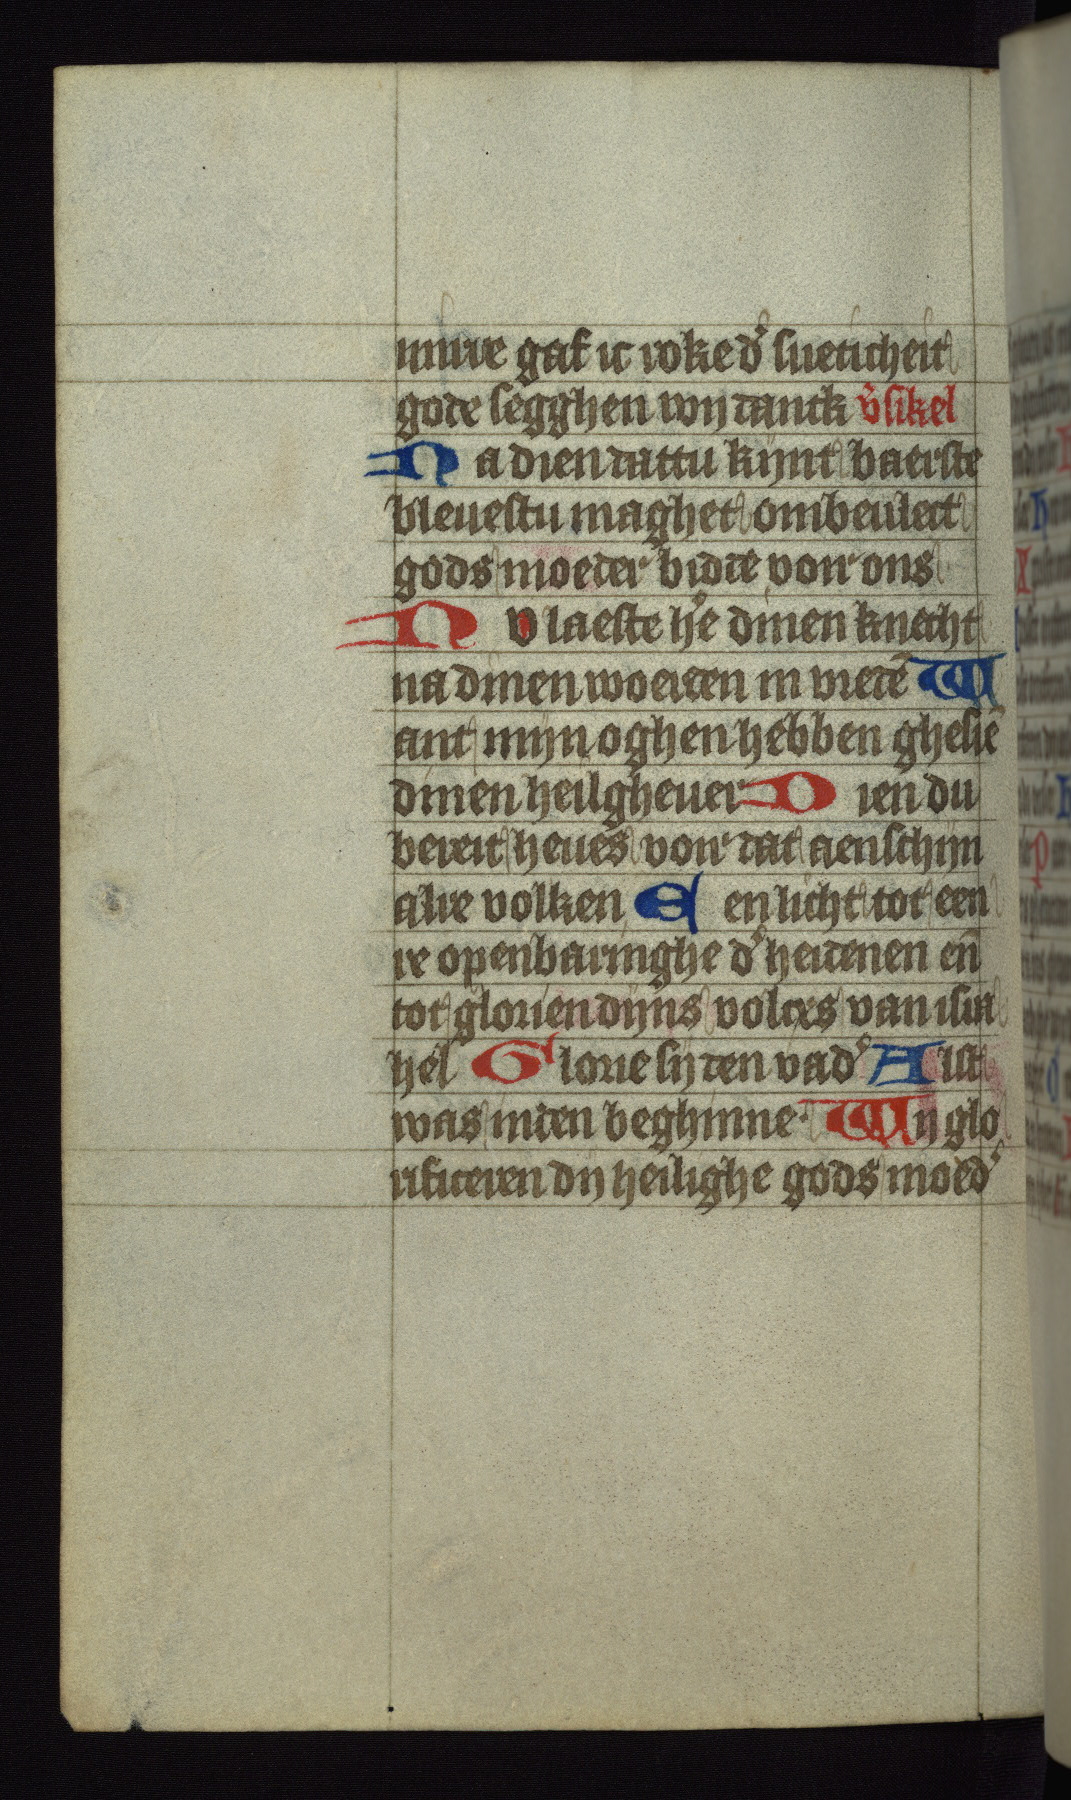 mirre gaf ic roke d' sueticheit
gode segghen wij danck v̄sikel
Na dien dattu kijnt baerste
bleuestu maghet ombeulect
gods moeder bidde voir ons
Nv laeste he̅ dinen knecht
na dinen woerden in vrede̅ W
ant mijn oghen hebben ghesie̅
dinen heilgheuer Dien du
bereit heues voir dat aenschijn
alre volken Een licht tot een
re openbaringhe d' heidenen en̅
tot glorien dijns volcxs van isra
hel Glorie sy den vad' Alst
was inden beghinne· Wy glo
rificeren dij heilighe gods moed'